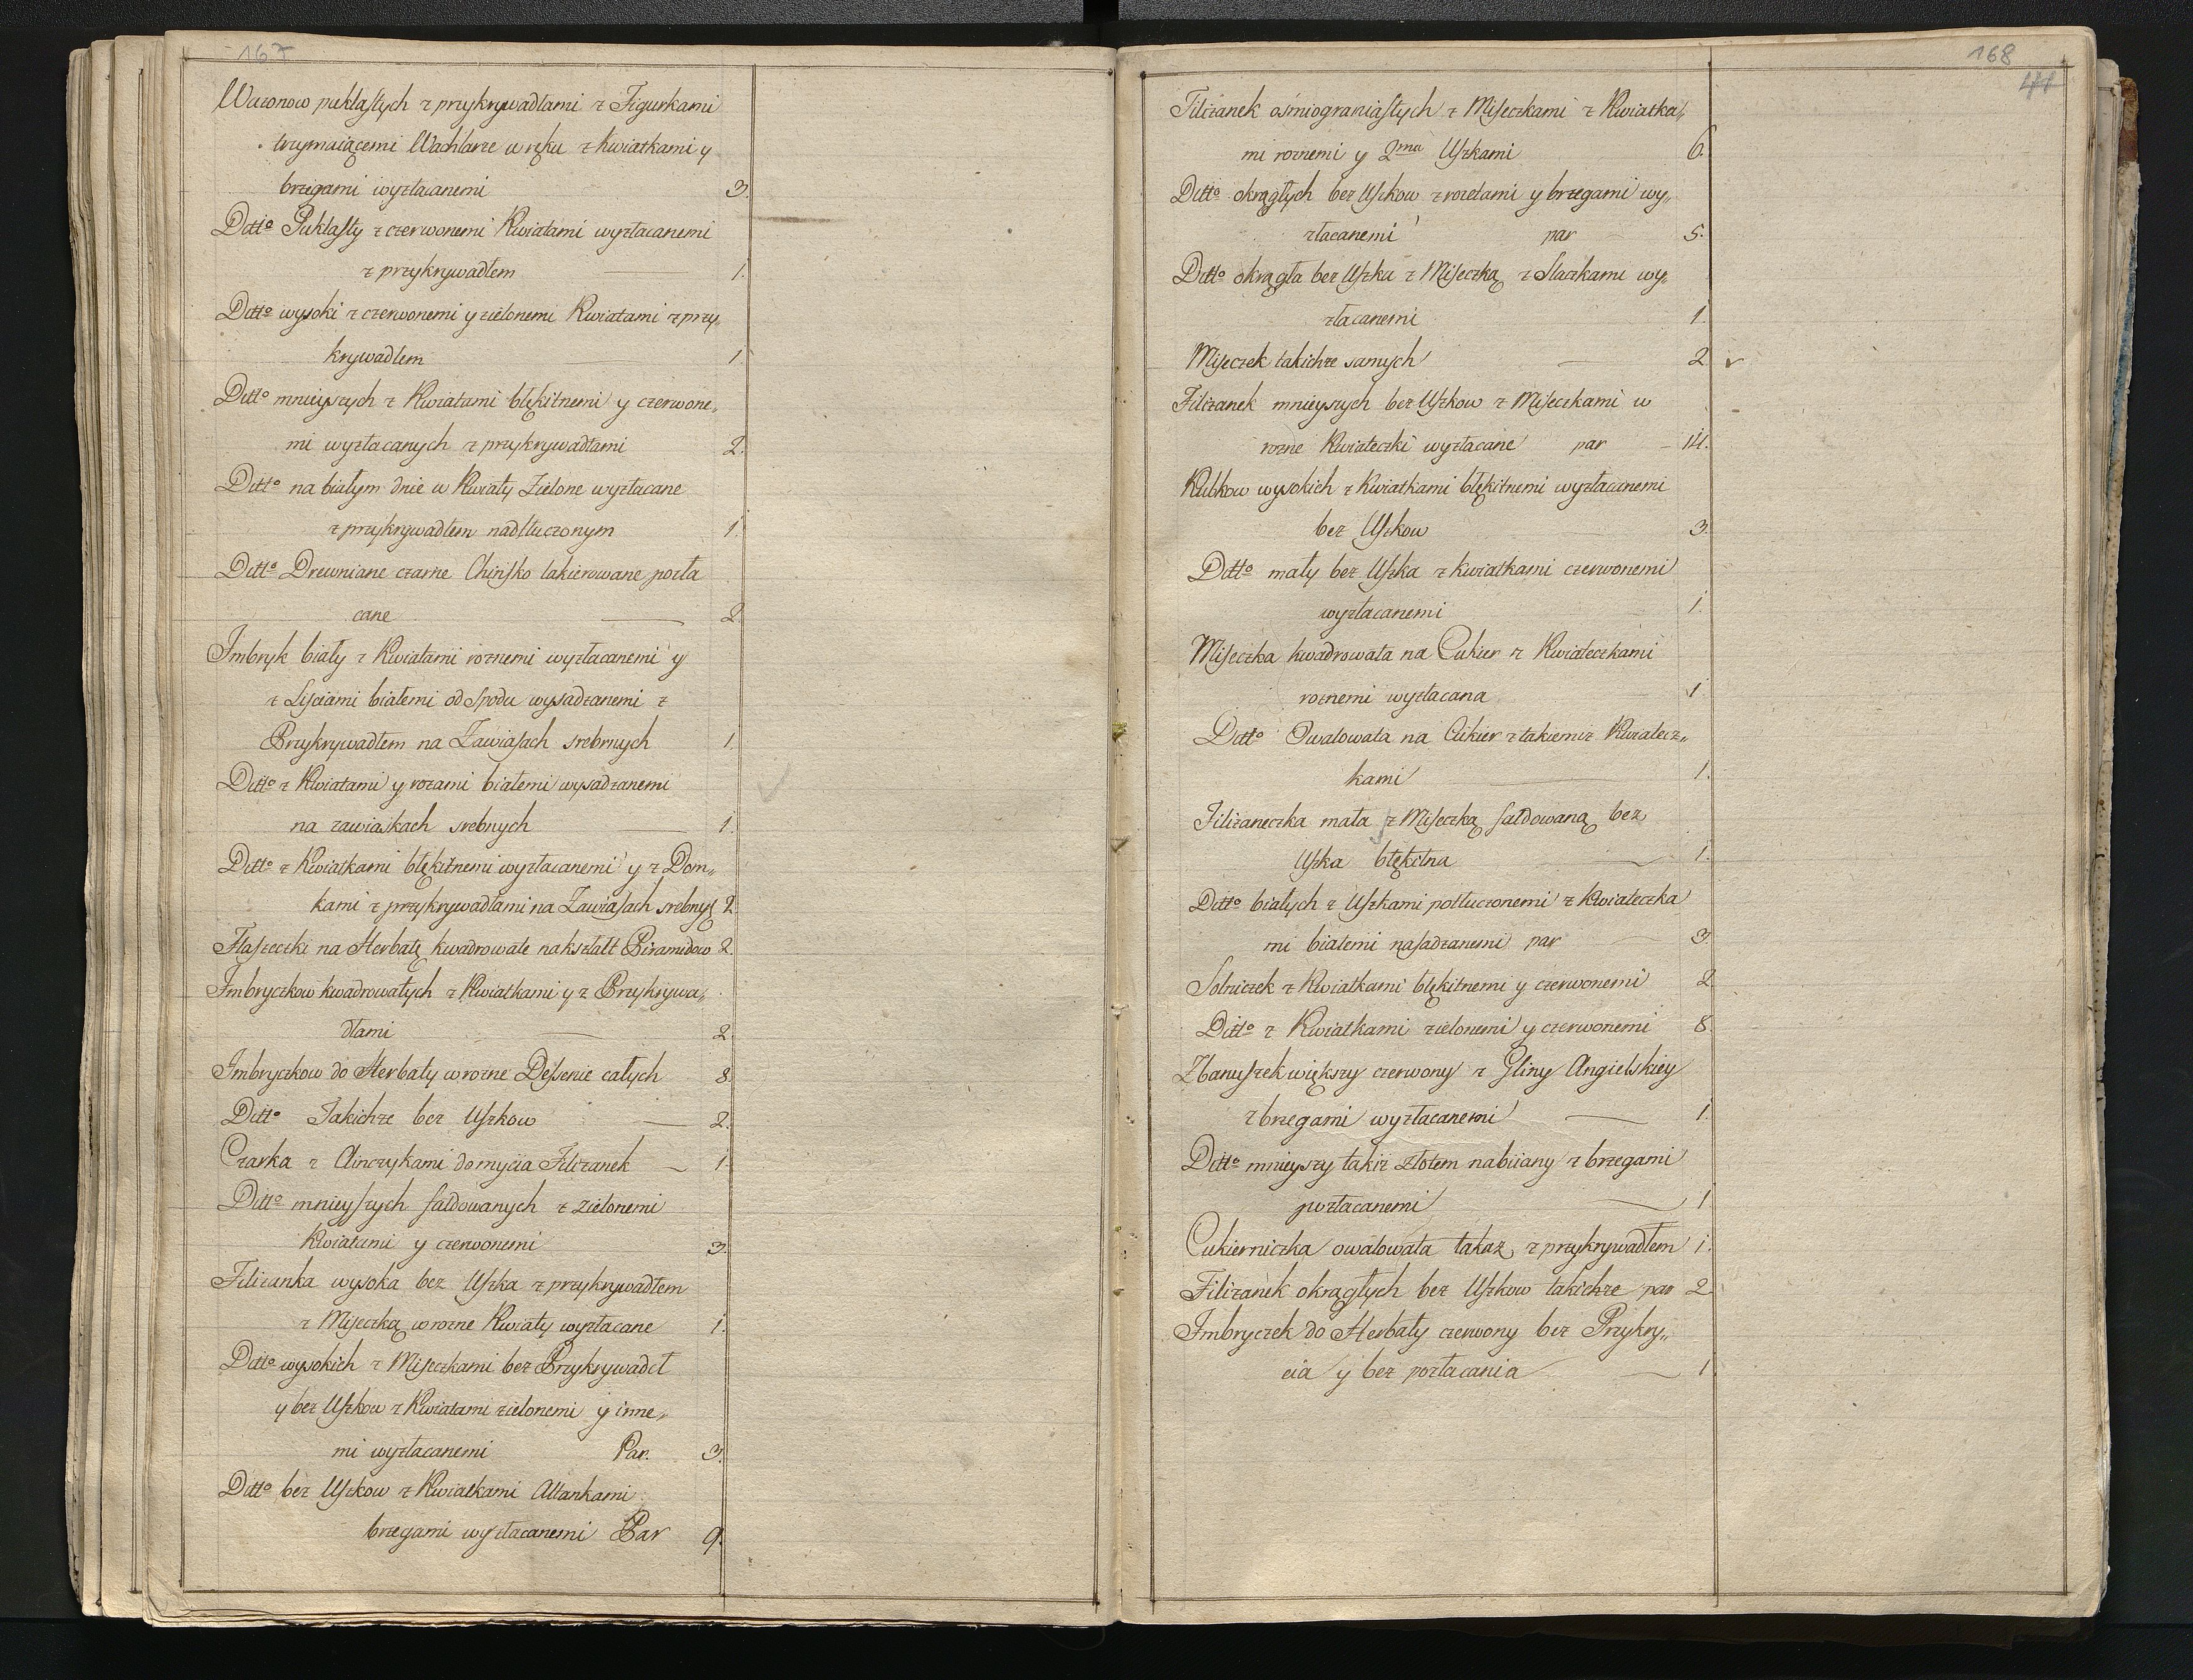 167
Wazonow puklastych z przykrywadłami z Figurkami
trzymaiącemi Wachlarze w ręku z kwiatkami y
brzegami wyzłacanemi 3.
Ditto Puklasty z czerwonemi Kwiatami wyzłacanemi
z przykrywadłem 1.
Ditto wysoki z czerwonemi y zielonemi Kwiatami z przy„
krywadłem 1.
Ditto mnieyszych z Kwiatami błękitnemi y czerwone„
mi wyzłacanych z przykrywadłami 2.
Ditto na białym dnie w Kwiaty Zielone wyzłacane
z przykrywadłem nadtłuczonym 1.
Ditto Drewniane czarne Chińsko lakierowane pozła
cane 2.
Imbryk biały z Kwiatami roznemi wyzłacanemi y
z Liściami białemi od spodu wysadzanemi z
Przykrywadłem na Zawiasach srebrnych 1.
Ditto z Kwiatami y rozami białemi wysadzanemi
na zawiaskach srebnych 1.
Ditto z Kwiatkami błękitnemi wyzłacanemi y z Dom„
kami z przykrywadłami na Zawiasach srebnych 2.
Flaszeczki na Herbatę kwadrowate nakształt Piramidow 2.
Imbryczkow kwadrowatych z Kwiatkami y z Przykrywa„
dłami 2.
Imbryczkow do Herbaty w rozne Desenie całych 8.
Ditto Takichze bez Uszkow 2.
Czarka z Chinczykami do mycia Filizanek 1.
Ditto mnieyszych fałdowanych z zielonemi
Kwiatami y czerwonemi 3.
Filizanka wysoka bez Uszka z przykrywadłem
z Miseczką w rozne Kwiaty wyzłacane 1.
Ditto wysokich z Miseczkami bez Przykrywadeł
y bez Uszkow z Kwiatami zielonemi y inne„
mi wyzłacanemi Par. 3.
Ditto bez Uszkow z Kwiatkami Altankami
brzegami wyzłacanemi Par 9.
168
44
Filizanek osmiograniastych z Miseczkami z Kwiatka„
mi roznemi y 2ma Uszkami 6.
Ditto okrągłych bez Uszkow z rozetami y brzegami wy„
złacanemi par 5.
Ditto okrągła bez Uszka z Miseczką z Szlaczkami wy„
złacanemi 1.
Miseczek takichze samych 2
Filizanek mnieyszych bez Uszkow z Miseczkami w
rozne Kwiateczki wyzłacane par 14.
Kubkow wysokich z Kwiatkami błękitnemi wyzłacanemi
bez Uszkow 3.
Ditto mały bez Uszka z kwiatkami czerwonemi
wyzłacanemi 1.
Miseczka kwadrowata na Cukier z Kwiateczkami
roznemi wyzłacana 1
Ditto Owalowata na Cukier z takiemiz Kwiatecz„
kami 1.
Filizaneczka mała z Miseczką fałdowaną bez
Uszka błękitna 1.
Ditto białych z Uszkami potłuczonemi z Kwiateczka
mi białemi nasadzanemi par 3.
Solniczek z Kwiatkami błękitnemi y czerwonemi 2
Ditto z Kwiatkami zielonemi y czerwonemi 8.
Zbanuszek większy czerwony z Gliny Angielskiey
z brzegami wyzłacanemi 1.
Ditto mnieyszy takiz złotem nabiiany z brzegami
pozłacanemi 1
Cukierniczka owalowata takaz z przykrywadłem 1.
Filizanek okrągłych bez Uszkow takichze par 2.
Imbryczek do Herbaty czerwony bez Przykry„
cia y bez pozłacania 1.